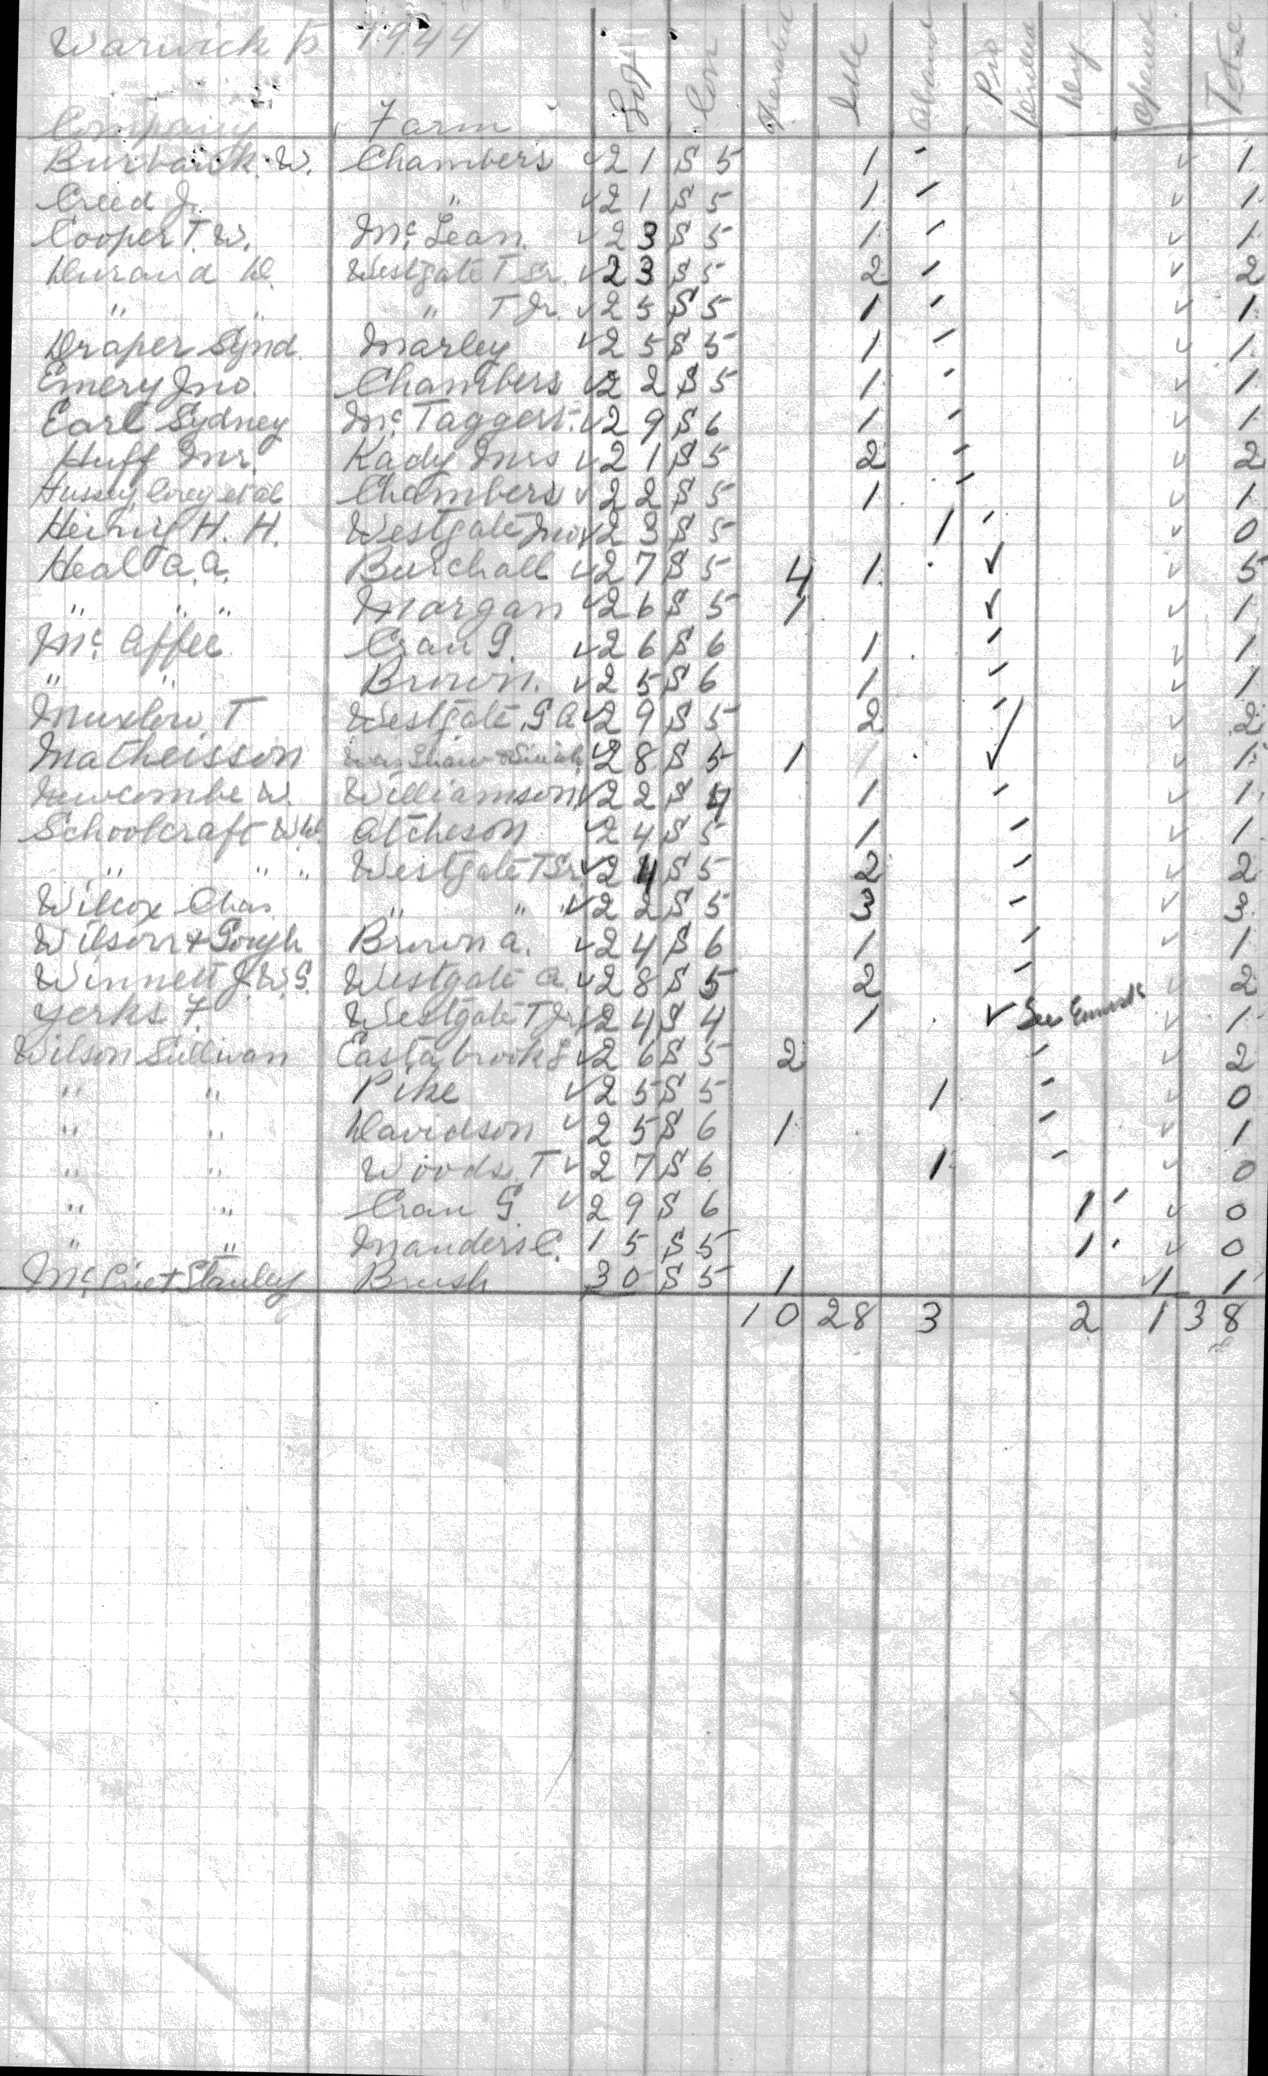 Warwick Tp 1944
Company Farm Lot Con Operated Idle Aband Pro Drilled Dry Opened Total
Burbank W. Chambers ✓ 21 S 5 1 - ✓ 1
Creed J. " ✓ 21 S 5 1 - ✓ 1
Cooper T. W. Mc Lean ✓ 23 S 5 1 - ✓ 1
Durand D. Westgate T Sr. ✓ 23 S 5 2 - ✓ 2
" " " T Jr. ✓ 25 S 5 1 - ✓ 1
Draper Synd. Marley ✓ 25 S 5 1 - ✓ 1
Emery Jno. Chambers ✓ 22 S 5 1 - ✓ 1
Earl Sydney Mc Taggert ✓ 29 S 6 1 - ✓ 1
Huff Mr. Kady Mrs ✓ 21 S 5 2 - ✓ 2
Hussey Corey et al Chambers ✓ 22 S 5 1 - ✓ 1
H. H. Westgate Jno ✓ 23 S 5 1 - ✓ 0
Heal A. A. Burchall ✓ 27 S 5 4 1 ✓ ✓ 5
" " " Morgan ✓ 26 S 5 1 ✓ ✓ 1
Mc Affee Cran G. ✓ 26 S 6 1 - ✓ 1
" " Brown. ✓ 25 S 6 1 - ✓ 1
Muxlow T Westgate G A ✓ 29 S 5 2 - ✓ 2
Matheisson ✓ 28 S 5 1 ✓ ✓ 1
Newcombe W. Williamson ✓ 22 S 4 1 - ✓ 1
Schoolcraft W. W. Atcheson ✓ 24 S 5 1 - ✓ 1
" " " Westgate T Sr. ✓ 24 S 5 2 - ✓ 2
Wilcox Chas. " " " ✓ 22 S 5 3 - ✓ 3
Wilson & Gough Brown A. ✓ 24 S 6 1 - ✓ 1
Winnett J. W. G. Westgate A. ✓ 28 S 5 2 - ✓ 2
Yerks F. Westgate T Jr. ✓ 24 S 4 1 ✓ See ✓ 1
Wilson Sullivan Eastabrook L ✓ 26 S 5 2 - ✓ 2
" " Pike ✓ 25 S 5 1 - ✓ 0
" " Davidson ✓ 25 S 6 1 - ✓ 1
" " Woods T ✓ 27 S 6 1 - ✓ 0
" " Cran G. ✓ 29 S 6 1 - ✓ 0
" " Manders C. 15 S 5 1 ✓ 0
Stanley Brush 30 S 5 1 ✓ 1 1
10 28 3 2 1 38